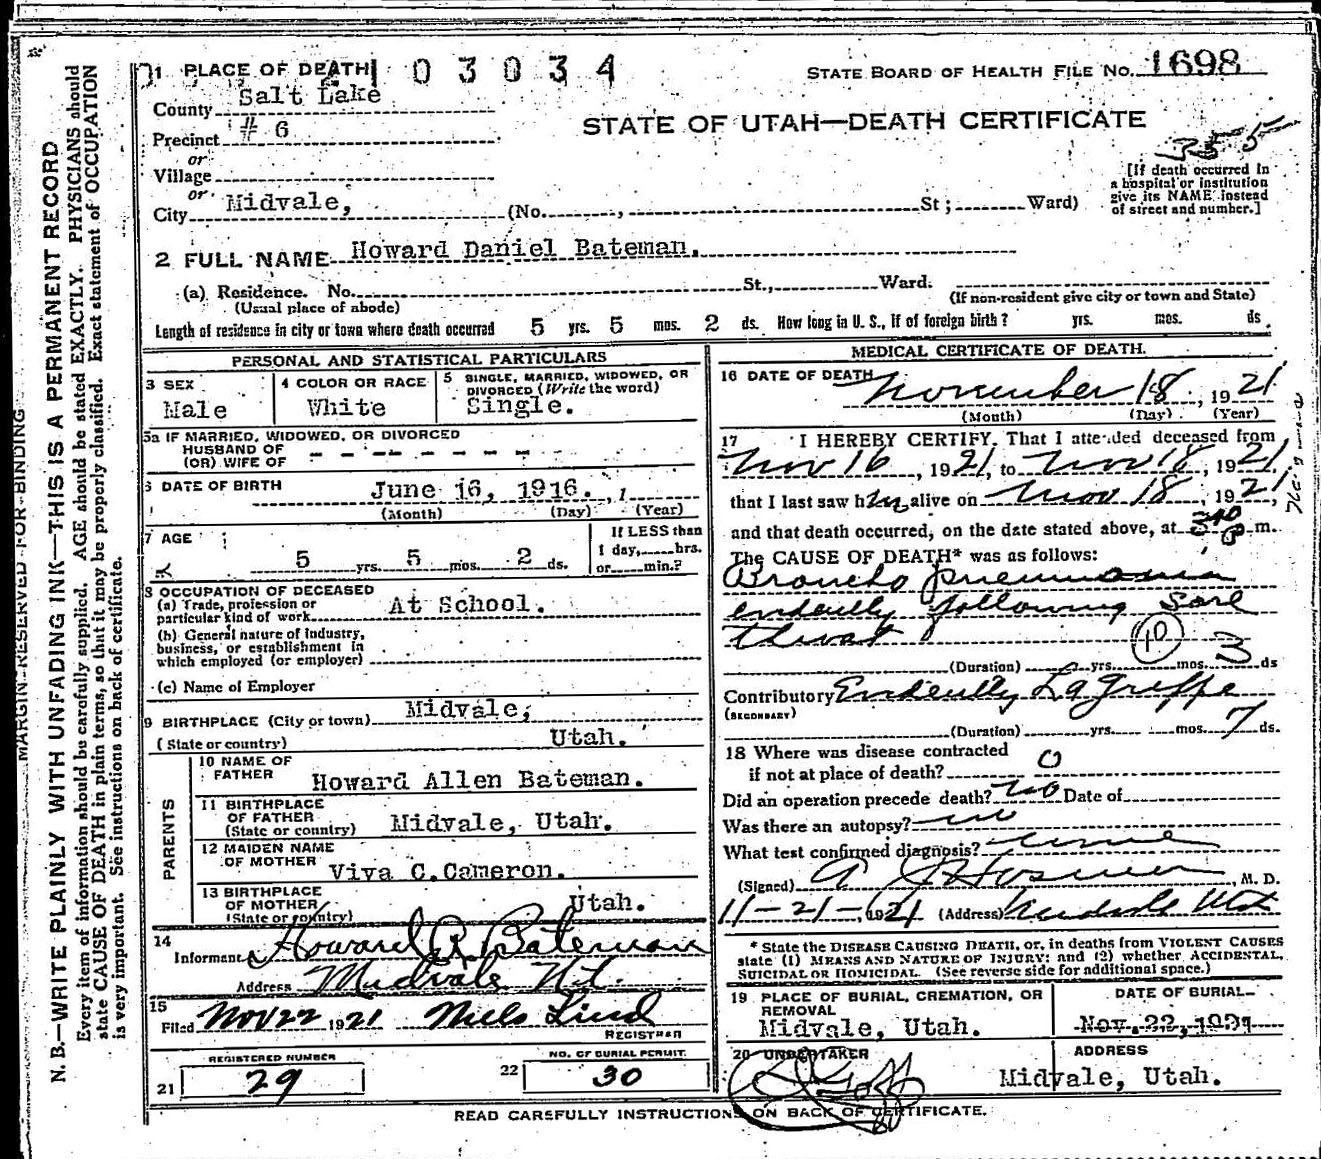 1 PLACE OF DEATH 03034
STATE BOARD OF HEALTH FILE NO. 1698
County Salt Lake
STATE OF UTAH—DEATH CERTIFICATE
Precinct # 6
355
or
Village
[If death occurred in
a hospital or institution
give its NAME instead
of street and number.]
or
City Midvale, (No. , St; Ward)
2 FULL NAME Howard Daniel Bateman.
(a) Residence. No. St., Ward.
(Usual place of abode) (If non-resident give city or town and State)
Length of residence in city or town where death occurred 5 yrs. 5 mos. 2 ds. How long in U. S., if of foreign birth? yrs. mos. ds.
PERSONAL AND STATISTICAL PARTICULARS
3 SEX
Male
4 COLOR OR RACE
White
5 SINGLE, MARRIED, WIDOWED, OR
DIVORCED (Write the word)
Single.
5a IF MARRIED, WIDOWED, OR DIVORCED
HUSBAND OF
(OR) WIFE OF - - - - - - -
6 DATE OF BIRTH June 16, 1916.
(Month) (Day) (Year)
7 AGE
5 yrs. 5 mos. 2 ds.
If LESS than
1 day, hrs.
or min.?
8 OCCUPATION OF DECEASED
(a) Trade, profession or
particular kind of work At School.
(b) General nature of industry,
business, or establishment in
which employed (or employer)
(c) Name of Employer
9 BIRTHPLACE (City or town) Midvale,
(State or country) Utah.
PARENTS
10 NAME OF
FATHER Howard Allen Bateman.
11 BIRTHPLACE
OF FATHER
(State or country) Midvale, Utah.
12 MAIDEN NAME
OF MOTHER Viva C.Cameron.
13 BIRTHPLACE
OF MOTHER
(State or country) Utah.
14
Informant Howard A. Bateman
Address Midvale Ut.
15
Filed Nov 22 1921 Niels Lind
REGISTRAR
21 REGISTERED NUMBER
29
22 NO. OF BURIAL PERMIT
30
MEDICAL CERTIFICATE OF DEATH.
16 DATE OF DEATH November 18, 1921
(Month) (Day) (Year)
17 I HEREBY CERTIFY, That I attended deceased from
Nov 16, 1921, to Nov 18, 1921,
that I last saw him alive on Nov 18, 1921,
and that death occurred, on the date stated above, at m.
The CAUSE OF DEATH* was as follows:
Broncho pneumonia
evidently following sore
throat
10
(Duration) yrs. mos. 3 ds
Contributory Evidently La Grippe
(SECONDARY)
(Duration) yrs. mos. 7 ds.
18 Where was disease contracted
if not at place of death? 0
Did an operation precede death? no Date of
Was there an autopsy? no
What test confirmed diagnosis? none
(Signed) M. D.
11-21-, 1921 (Address) Midvale Utah
* State the DISEASE CAUSING DEATH, or, in deaths from VIOLENT CAUSES
state (1) MEANS AND NATURE OF INJURY; and (2) whether ACCIDENTAL,
SUICIDAL OR HOMICIDAL. (See reverse side for additional space.)
19 PLACE OF BURIAL, CREMATION, OR
REMOVAL
Midvale, Utah.
DATE OF BURIAL
Nov.22,1921
20 UNDERTAKER
ADDRESS
Midvale, Utah.
READ CAREFULLY INSTRUCTIONS ON BACK OF CERTIFICATE.
MARGIN RESERVED FOR BINDING
N. B.—WRITE PLAINLY WITH UNFADING INK—THIS IS A PERMANENT RECORD
Every item of information should be carefully supplied. AGE should be stated EXACTLY. PHYSICIANS should
state CAUSE OF DEATH in plain terms, so that it may be properly classified. Exact statement of OCCUPATION
is very important. See instructions on back of certificate.